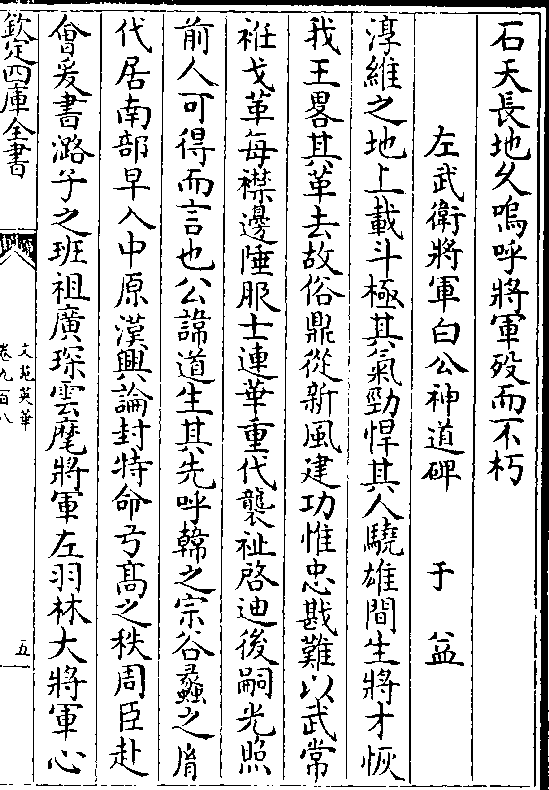 石天長地久嗚呼將軍殁而不朽
左武衛將軍白公神道碑 于益
淳維之地上載斗極其氣勁悍其人驍雄間生將才恢
我王畧其革去故俗鼎從新風建功惟忠戡難以武常
袵戈革每襟邊陲服士連華重代襲祉啓迪後嗣光照
前人可得而言也公諱道生其先呼韓之宗谷蠡之胤
代居南部早入中原漢興論封特命弓髙之秩周臣赴
會爰書潞子之班祖廣琛雲麾將軍左羽林大將軍心
欽定四庫全書
文苑英華
卷九百八
五